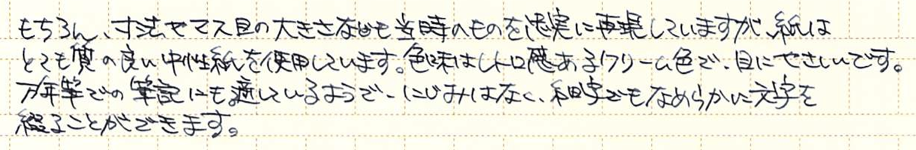 もちろん、寸法やマス目の大きさなども当時のものを忠実に再現していますが、紙は
とても質の良い中性紙を使用しています。色味はレトロ感あるクリーム色で、目にやさしいです。
万年筆での筆記にも適しているようで、にじみはなく、細字でもなめらかに文字を
綴ることができます。